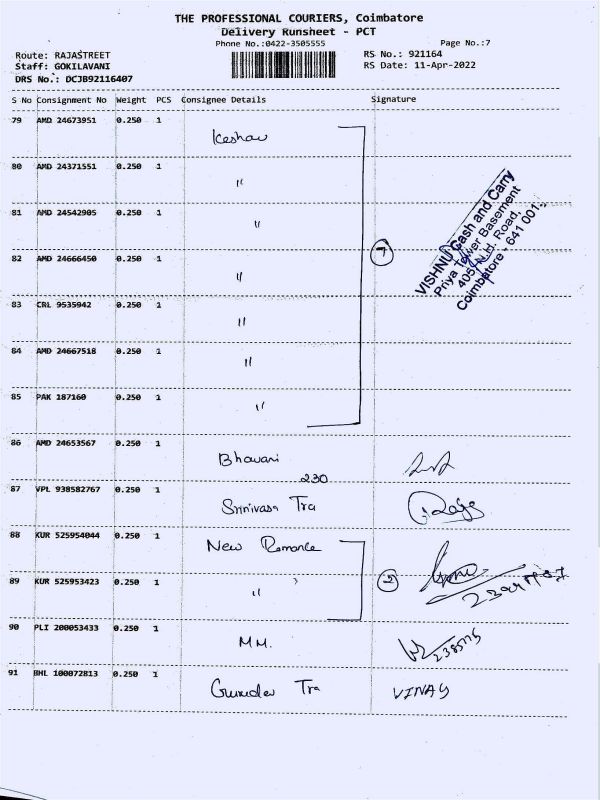 THE PROFESSIONAL COURIERS, Coimbatore
Delivery Runsheet - PCT
Phone No.:0422-3505555
Page No.:7
Route: RAJASTREET
RS No.: 921164
Staff: GOKILAVANI
RS Date: 11-Apr-2022
DRS No.: DCJB92116407
S No Consignment No Weight PCS Consignee Details Signature
79 AMD 24673951 0.250 1 Keshav
80 AMD 24371551 0.250 1 "
81 AMD 24542905 0.250 1 "
82 AMD 24666450 0.250 1 " 7
VISHNU Cash and Carry
Priya Tower Basement
405, N.H. Road,
Coimbatore - 641 001.
83 CRL 9535942 0.250 1 "
84 AMD 24667518 0.250 1 "
85 PAK 187160 0.250 1 "
86 AMD 24653567 0.250 1 Bhavani
230
87 VPL 938582767 0.250 1 Srinivasa Tra Raja
88 KUR 525954044 0.250 1 New Romance
89 KUR 525953423 0.250 1 " 2
90 PLI 200053433 0.250 1 M.M.
91 BHL 100072813 0.250 1 Gurudev Tra VINAY